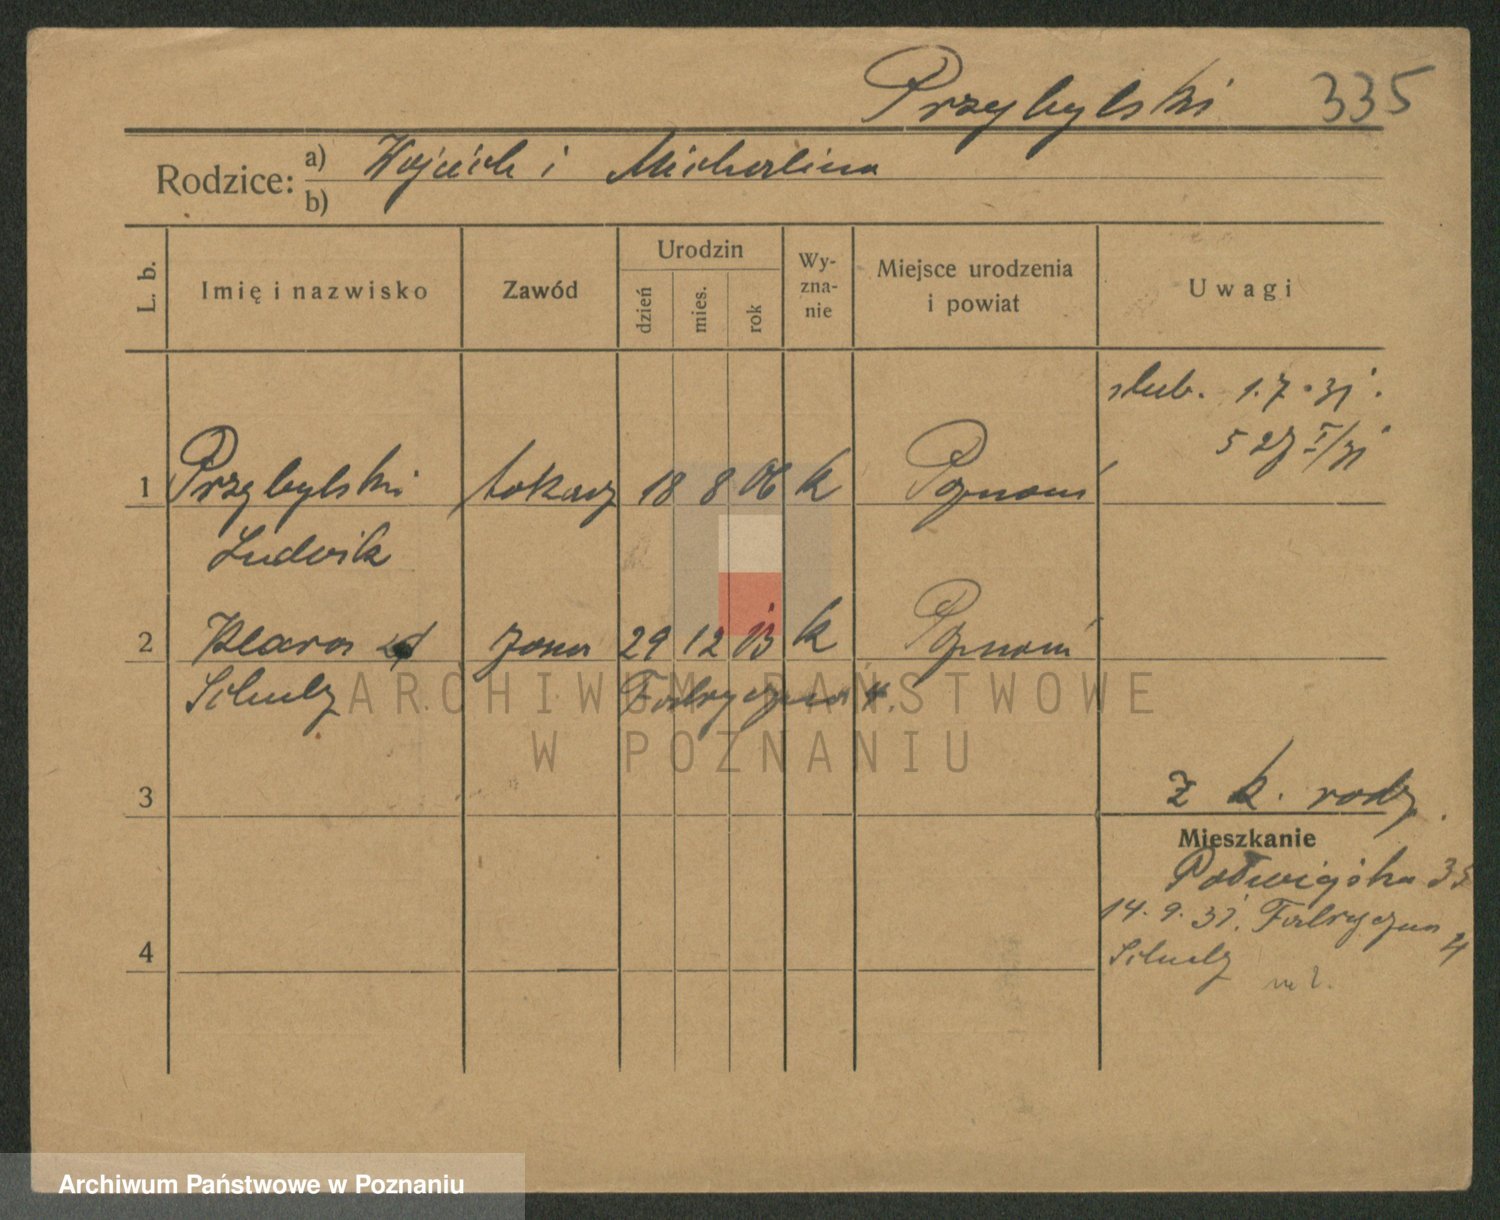 Przybylski 335
Rodzice: a) Wojciech i Michalina
b)
L. b. Imię i nazwisko Zawód Urodzin dzień mies. rok Wy-zna-nie Miejsce urodzenia i powiat Uwagi
ślub. 1.7.31.
1 Przybylski tokarz 18 8 06 k Poznań
Ludwik
2 Klara żona 29 12 k Poznań
Schulz Fabryczna 4.
ARCHIWUM PAŃSTWOWE
W POZNANIU
3 z k. rodz.
Mieszkanie
35
14.9.31. Fabryczna
4 Schulz 4
Archiwum Państwowe w Poznaniu